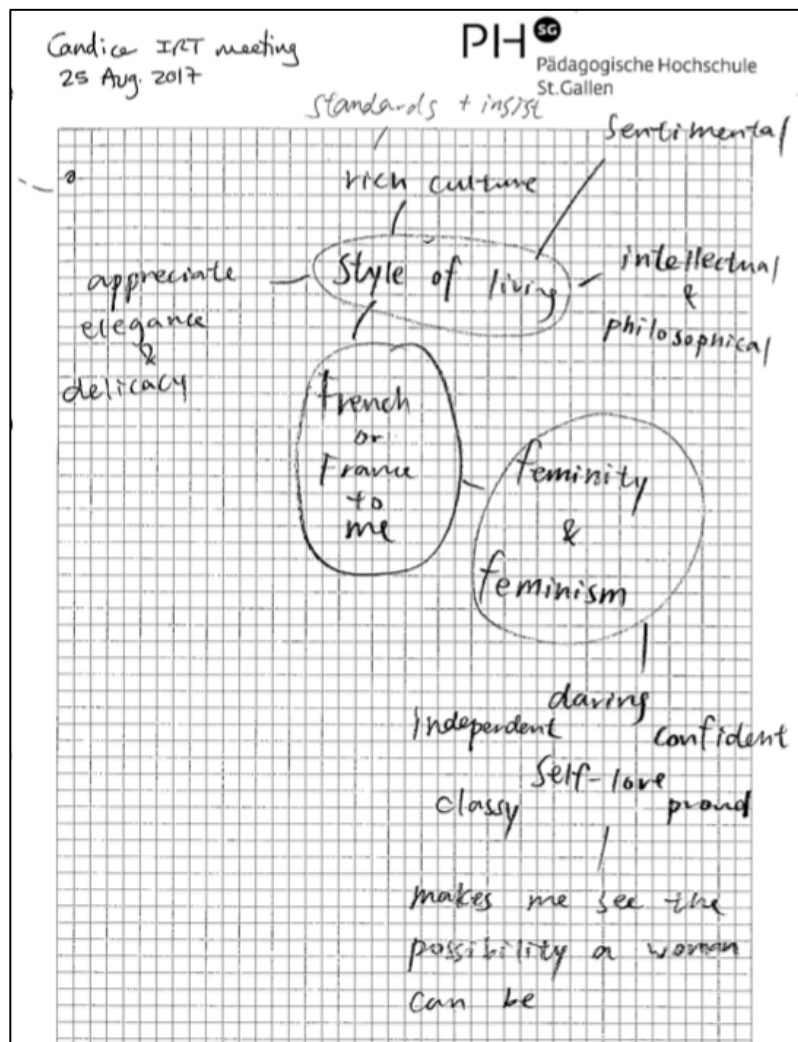 Candice IRT meeting
25 Aug. 2017
PH SG
Pädagogische Hochschule
St.Gallen
standards + insist
sentimental
rich culture
style of living
intellectual
&
philosophical
appreciate
elegance
&
delicacy
French
or
France
to
me
feminity
&
feminism
daring
independent
confident
self-love
classy
proud
makes me see the
possibility a woman
can be